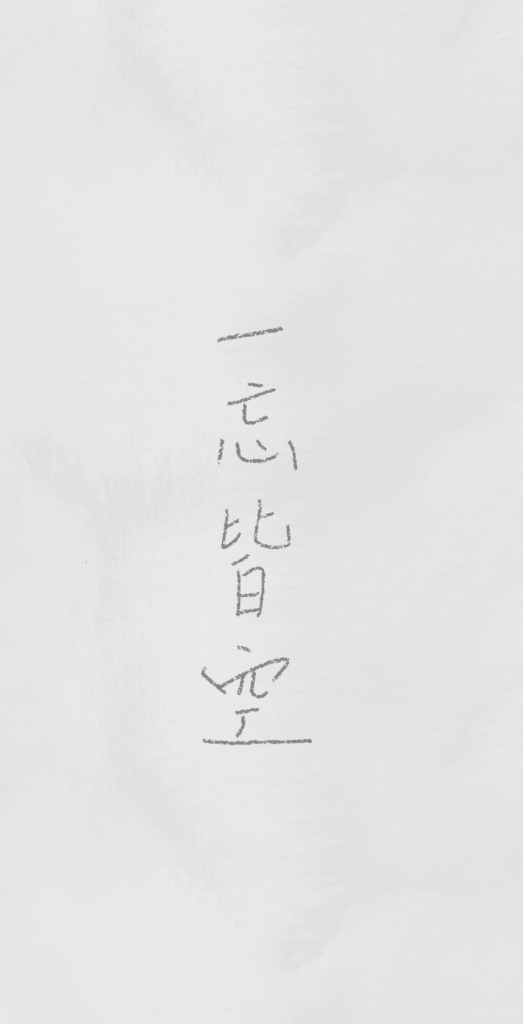 一忘皆空